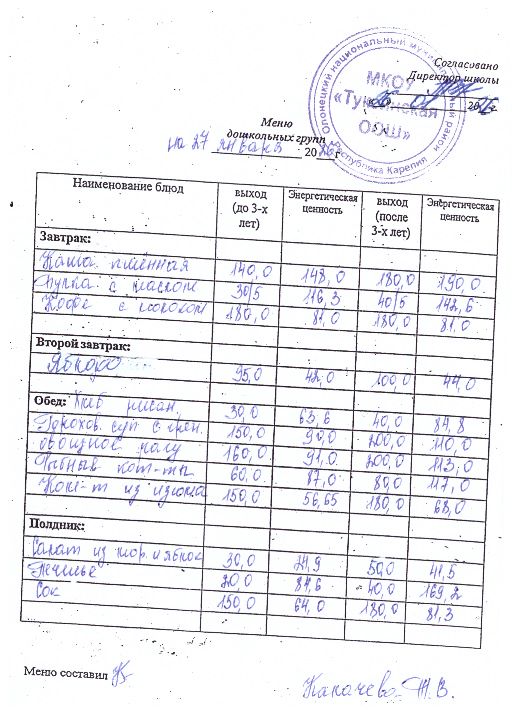 Согласовано
Директор школы
Олонецкий национальный муниципальный район
Республика Карелия
МКОУ
«Туксинская
ООШ»
Меню
дошкольных групп
на 27 января 20 г
Наименование блюд выход (до 3-х лет) Энергетическая ценность выход (после 3-х лет) Энергетическая ценность
Завтрак:
Каша пшённая 140,0 148,0 180,0 190,0
Булка с маслом 30/5 116,3 40/5 142,6
Кофе с молоком 180,0 81,0 180,0 81,0
Второй завтрак:
Яблоко 95,0 42,0 100,0 44,0
Обед: Хлеб пшен. 30,0 63,6 40,0 84,8
Горохов. суп с грен. 150,0 90,0 200,0 110,0
Овощное рагу 160,0 91,0 200,0 113,0
Рыбные кот-ты 60,0 87,0 80,0 117,0
Комп-т из изюма 150,0 56,65 180,0 68,0
Полдник:
Салат из мор. и яблок 30,0 24,9 50,0 41,5
Печенье 20,0 84,6 40,0 169,2
Сок 150,0 64,0 180,0 81,3
Меню составил
Т.В.